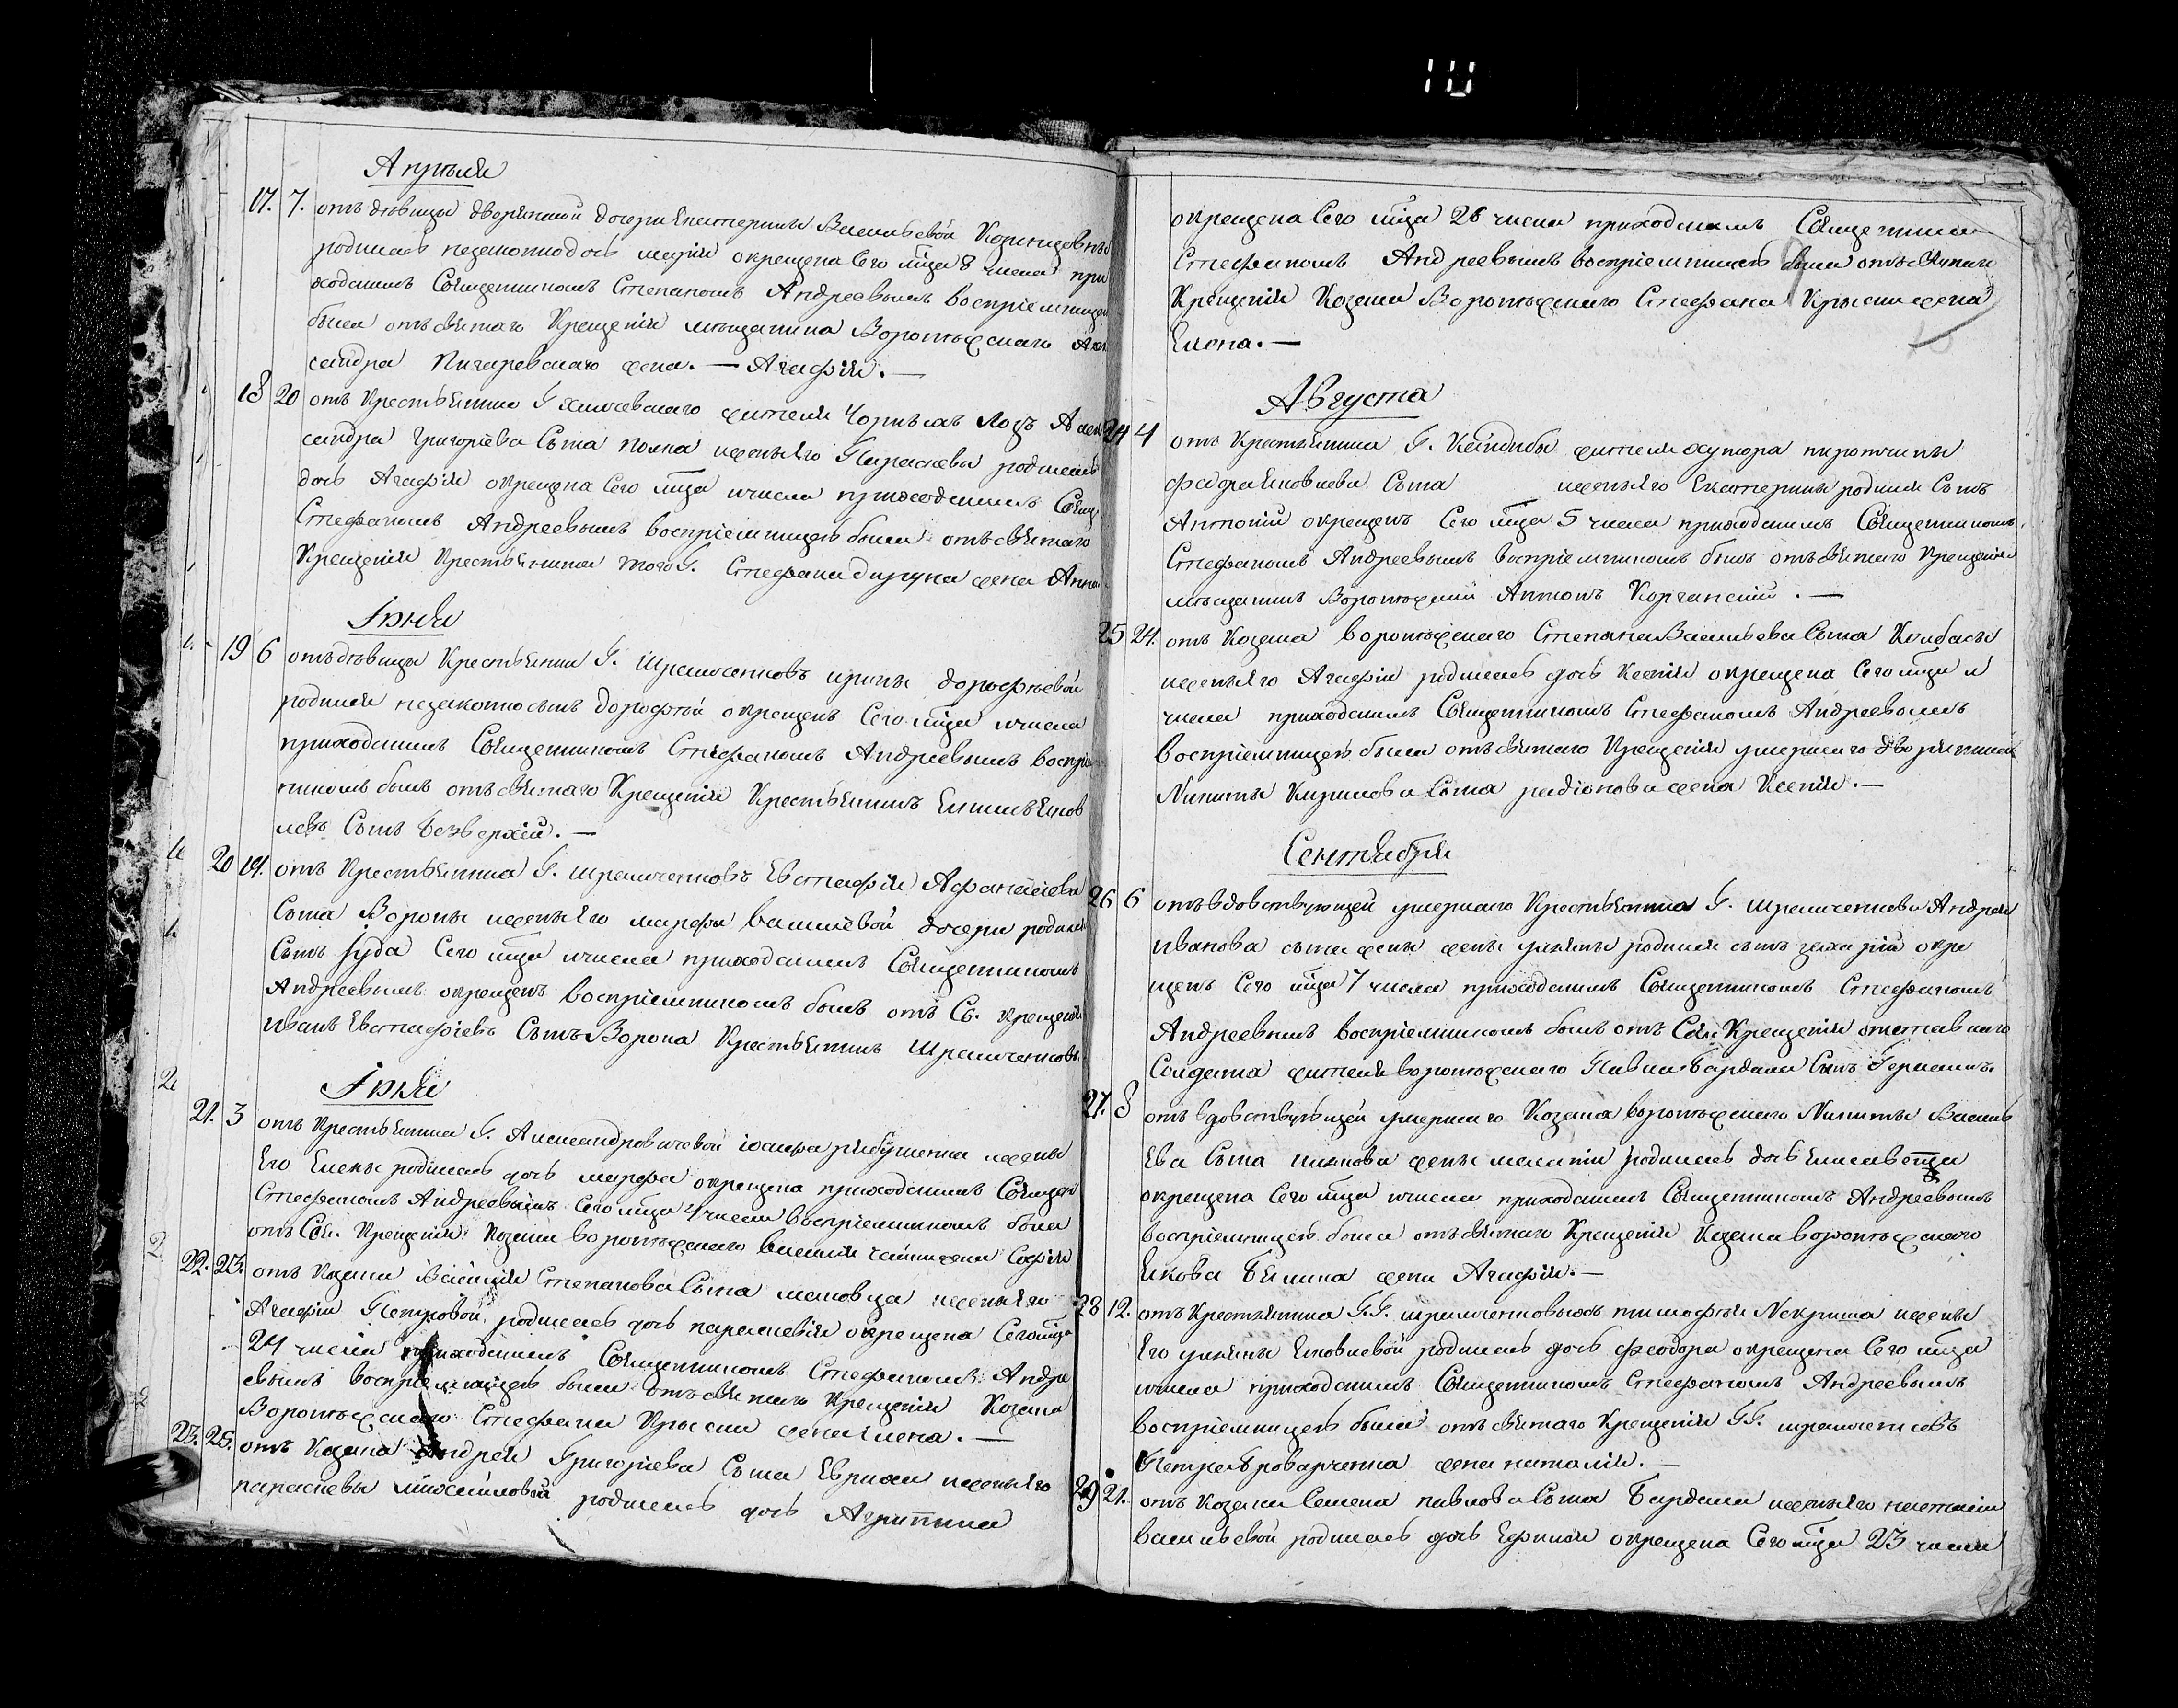 10
Априля
17. 7. отъ дѣвицы дворянской дочери Екатерины Васильевой
родилась незаконно дочь Марія окрещена Сего мца 8 числа при
ходскимъ Священникомъ Степаномъ Андреевымъ воспріемницею
была отъ святаго Крещенія мѣщанина Воронѣжскаго Алек
сандра Пигаревскаго жена. — Агафія. —
18 20 отъ Крестьянина Г. жителя Алек
сандра Григоріева Сына и жены Его Параскевы родилась
дочь Агафія окрещена Сего мца и числа приходскимъ Свящ
Стефаномъ Андреевымъ воспріемницею была отъ святаго
Крещенія Крестьянина того Г. Стефана жена Анна
Іюня
19 6 отъ дѣвицы Крестьянки Г. Шрамченковъ ирины дорофѣевой
родился незаконно сынъ дорофѣй окрещенъ Сего мца и числа
приходскимъ Священникомъ Стефаномъ Андреевымъ воспріе
никомъ былъ отъ святаго Крещенія Крестьянинъ
левъ Сынъ Безверхій. —
20 14. отъ Крестьянина Г. Шрамченковъ Евстафія Афанасіева
Сына Вороны и жены Его марфы дочери родился
Сынъ Іуда Сего мца и числа приходскимъ Священникомъ
Андреевымъ окрещенъ воспріемникомъ былъ отъ Св. крещенія
иванъ Евстафіевъ Сынъ Ворона Крестьянинъ Шрамченковъ.
Іюля
21. 3 отъ Крестьянина Г. Александровичевой и жены
Его Елены родилась дочь марфа окрещена приходскимъ Священ
Стефаномъ Андреевымъ Сего мца 4 числа воспріемникомъ была
отъ Свя. Крещенія Козака воронѣжскаго жена Софія
22. 23. отъ Козака Василія Степанова Сына и жены Его
Агафіи Петровой родилась дочь параскевія окрещена Сего мца
24 числа приходскимъ Священникомъ Стефаномъ Андре
евымъ воспріемницею была отъ святаго Крещенія Козака
Воронѣжскаго Стефана Крыски жена Елена. —
23. 25. отъ Козака Андрея Григоріева Сына и жены Его
параскевы михайловой родилась дочь Агрипина
окрещена Сего мца 26 числа приходскимъ Священникомъ
Стефаномъ Андреевымъ воспріемницею была отъ святаго
Крещенія Козака Воронѣжскаго Стефана Крыски жена
Елена. —
Августа
24 4 отъ Крестьянина Г. Кандибы жителя хутора
Сына и жены Его Екатерины родился Сынъ
Антоній окрещенъ Сего мца 5 числа приходскимъ Священникомъ
Стефаномъ Андреевымъ воспріемникомъ былъ отъ святаго Крещенія
мѣщанинъ Воронѣжскій Антонъ Корчанскій. —
25 24. отъ Козака воронѣжскаго Степана Васильева Сына Кулбаки
и жены Его Агафіи родилась дочь Ксенія окрещена Сего мца и
числа приходскимъ Священникомъ Стефаномъ Андреевымъ
воспріемницею была отъ святаго Крещенія умершаго дворянина
Никиты Кирилова Сына родіонова жена Ксенія. —
Сентября
26 6 отъ вдовствующей умершаго Крестьянина Г. Шрамченкова Андрея
иванова сына жены улияны родился сынъ захарій окре
щенъ Сего мца 7 числа приходскимъ Священникомъ Стефаномъ
Андреевымъ воспріемникомъ былъ отъ Свя. Крещенія отставнаго
Солдата жителя воронѣжскаго Павла Бардака Сынъ
27. 8 отъ вдовствующей умершаго Козака воронѣжскаго Никиты Василь
Ева Сына жены меланіи родилась дочь Елисавета
окрещена Сего мца и числа приходскимъ Священникомъ Андреевымъ
воспріемницею была отъ святаго Крещенія Козака воронѣжскаго
Якова жена Агафія. —
28 12. отъ Крестьянина Г.Г. шрамченковыхъ тимофѣя Некраша и жены
Его улияны Яковлевой родилась дочь феодора окрещена Сего мца
и числа приходскимъ Священникомъ Стефаномъ Андреевымъ
воспріемницею была отъ святаго Крещенія Г.Г. шрамченковъ
Петра жена наталія. —
29 21. отъ козака Семена павлова Сына Бардака и жены Его настасіи
васильевой родилась дочь Ефимія окрещена Сего мца 23 числа